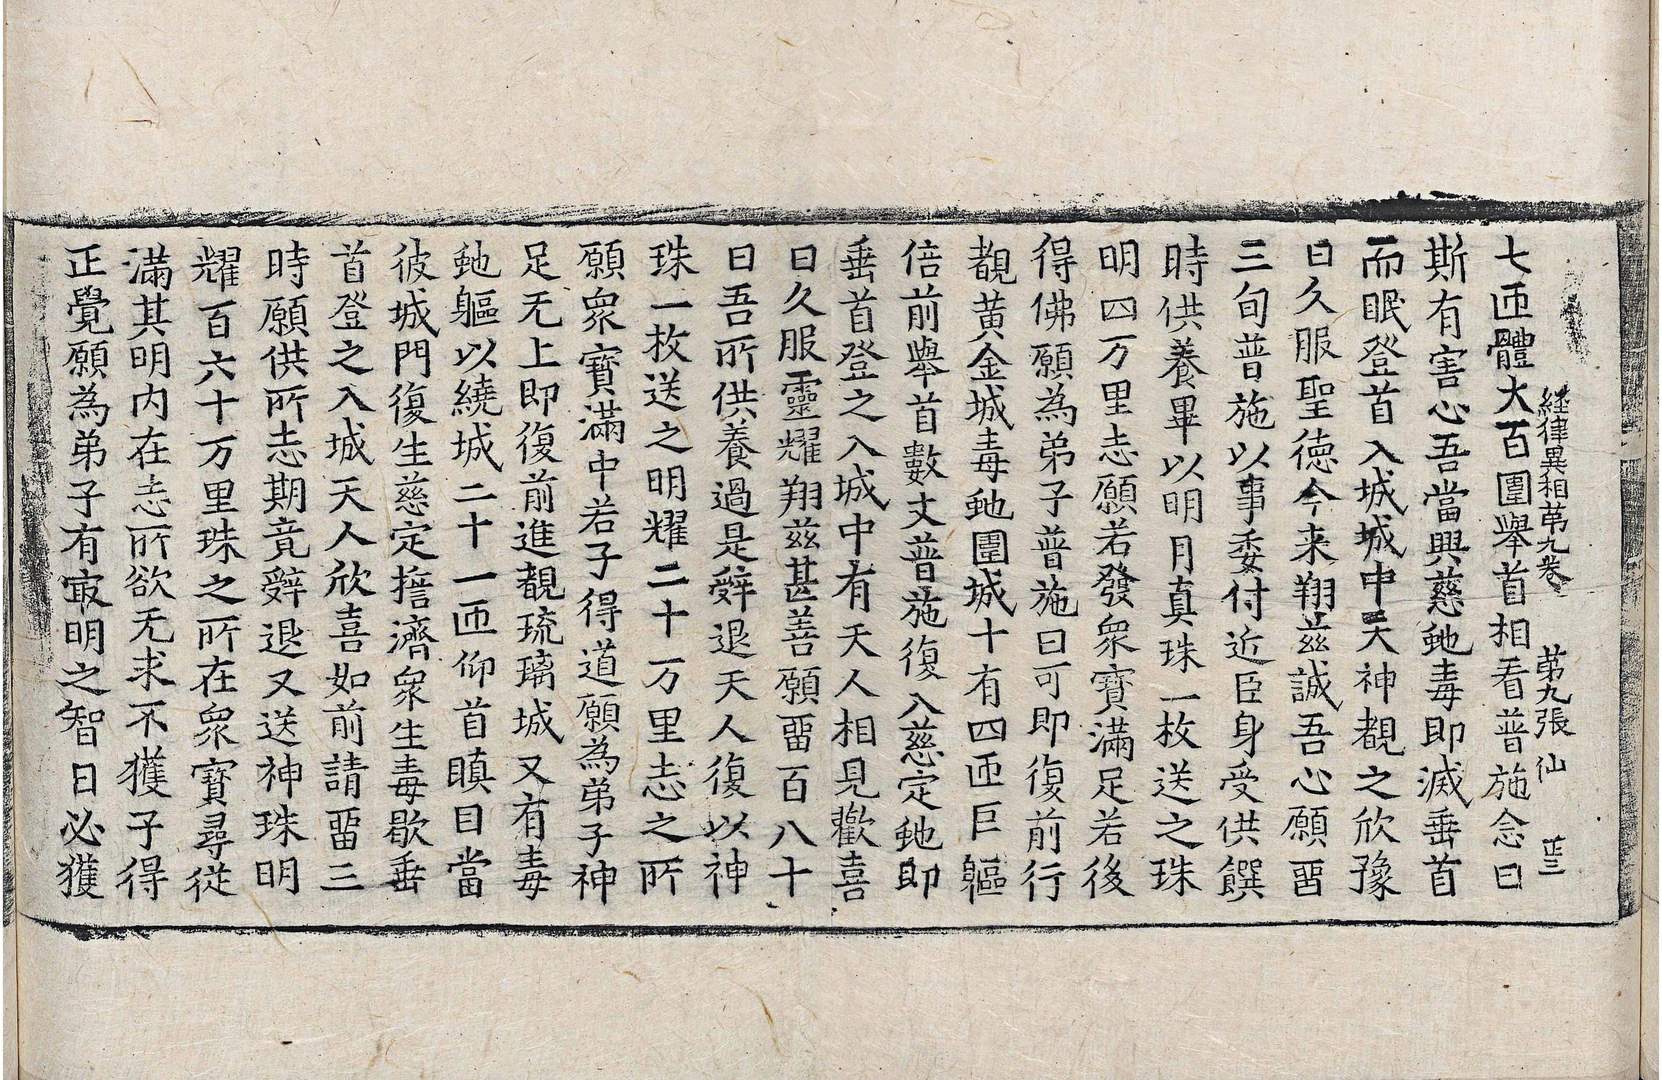 経律異相苐九卷 苐九張 仙 正三
七匝體大百圍舉首相看普施念曰
斯有害心吾當興慈虵毒即滅垂首
而眠登首入城城中天神覩之欣豫
曰久服聖徳今来翔茲誠吾心願畱
三旬普施以事委付近臣身受供饌
時供養畢以明月真珠一枚送之珠
明四万里志願若發衆寳滿足若後
得佛願為弟子普施曰可即復前行
覩黃金城毒虵圍城十有四匝巨軀
倍前舉首數丈普施復入慈定虵即
垂首登之入城中有天人相見歡喜
曰久服靈耀翔茲甚善願畱百八十
日吾所供養過是辤退天人復以神
珠一枚送之明耀二十万里志之所
願衆寳滿中若子得道願為弟子神
足无上即復前進覩琉璃城又有毒
虵軀以繞城二十一匝仰首瞋目當
彼城門復生慈定擔濟衆生毒歇垂
首登之入城天人欣喜如前請畱三
時願供所志期竟辤退又送神珠明
耀百六十万里珠之所在衆寳尋從
滿其明内在志所欲无求不獲子得
正覺願為弟子有㝡明之智曰必獲